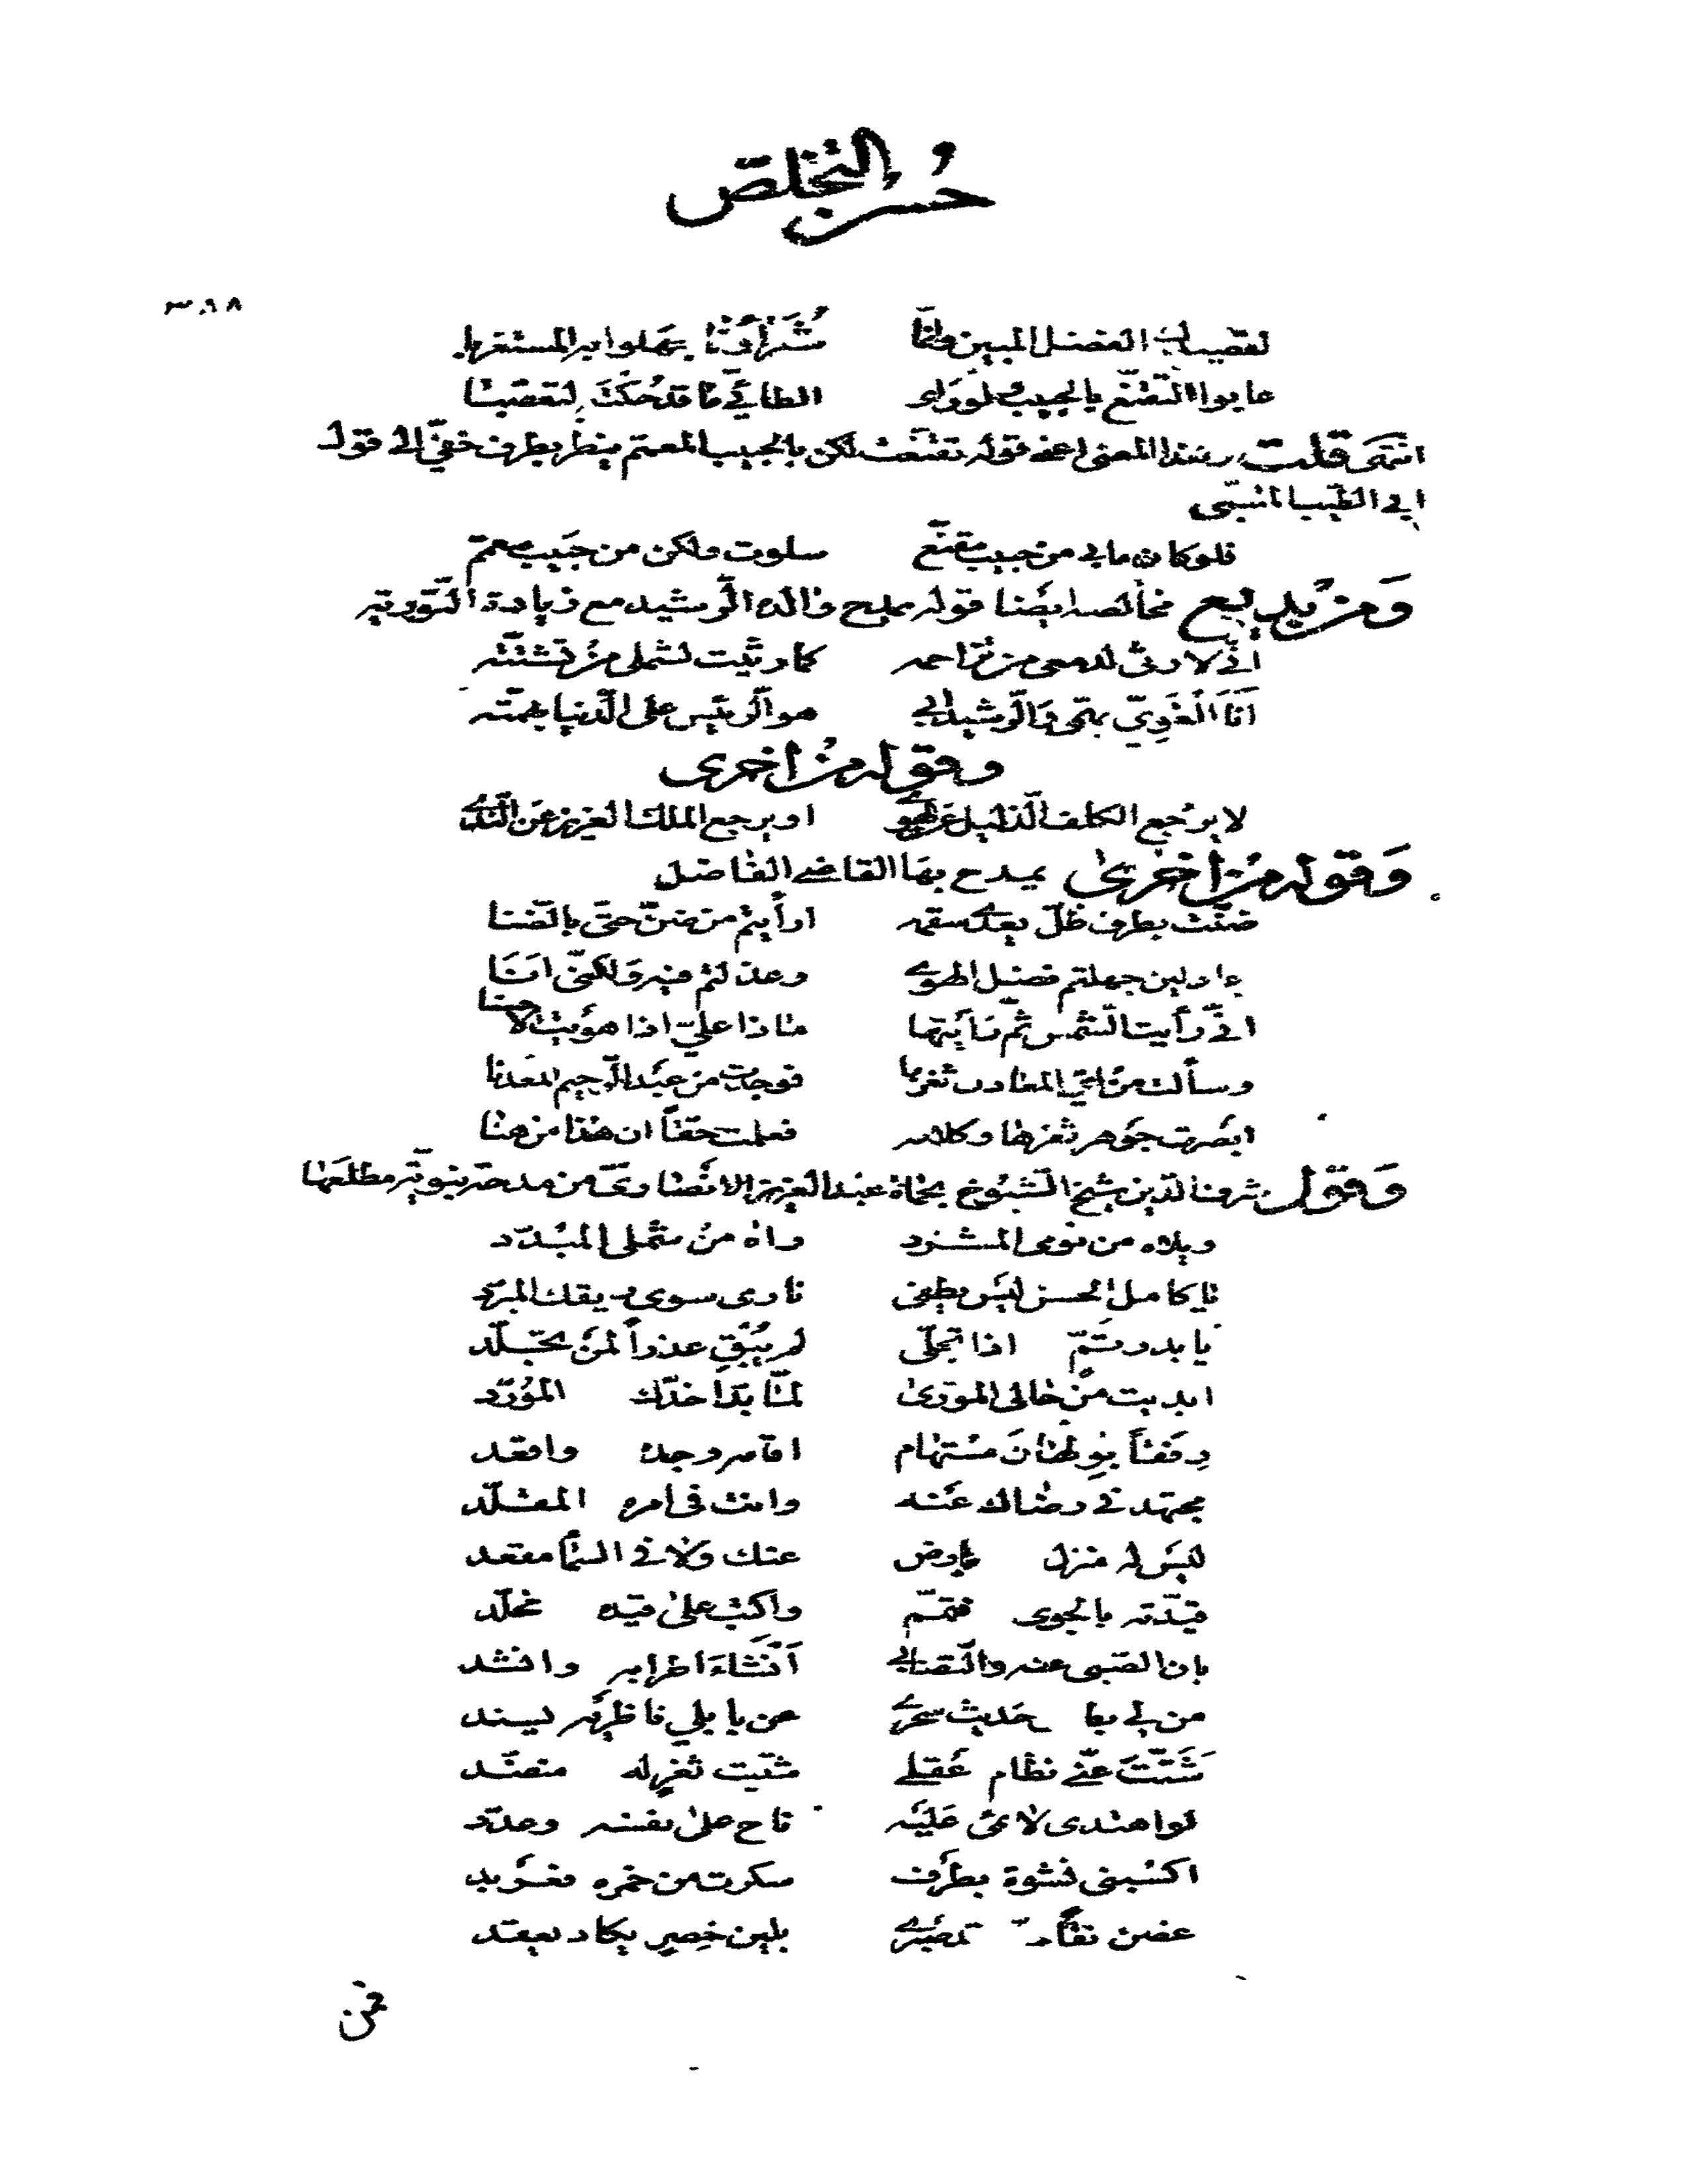 حُسن التخلص
٣٨٨
عابوا التقنّع بالحبيب لورأى الطائي ما قد حُكتَ لتعصبا
انتهى قلت هذا المعنى اعنى قوله تقنّعت لكن بالحبيب المعمّم ينظر بطرف خفيّ الى قول
ابي الطيّب المتنبّي
فلو كان مابي من حبيب مقنّع سلوت ولكن من حبيب معمّم
وَمن بديع مخالصه ايضا قوله يمدح والده الرّشيد مع زيادة التّورية
انّي لارثى لدمعى من تزاحمه كما رثيت لشملى من تشتّته
أَنَا الْغَوِيّ بحّى وَالرّشيد ابي هو الرّئيس على الدّنيا بهمّته
وقوله من اخرى
لا يرجع الكلف الذليل عن الهوى او يرجع الملك العزيز عن النّدى
وَقوله من اخرى يمدح بها القاضي الفاضل
ضنّت بطرف ظلّ بعدى سقمه ارأيتم من ضنّ حتى بالضّنا
جهلتم فضل الهوى وعذلتم فيه وَلكنّى انَا
انّي رأيت الشّمس ثمّ رأيتها ماذا عليّ اذا هويت الاحسنا
وسألت من ايّ المعادن ثغرها فوجدت من عبد الرّحيم المعدنا
ابصرت جوهر ثغرها وكلامه فعلمت حقّاً ان هذا من هنا
وَقول شرف الدّين شيخ الشّيوخ بحماة عبد العزيز الانصاريّ من مدحة نبويّة مطلعها
ويلاه من نومى المشرّد واه من شملى المبدّد
يا كامل الحسن ليس يطفى نارى سوى ريقك المبرّد
يا بدر تمّ اذا تجلّى لم يُبْقِ عذراً لمن تجلّد
ابديت من حالى المورّى لمّا بدا خدّك المورّد
رِفقاً بولهان مستهام اقامه وجده واقعد
مجتهد في رضاك عنه وانت فى امره المقلّد
ليس له منزل بارض عنك ولا في السّما مقعد
قيّدته بالجوى فتمّم واكتب على قيده مخلّد
بان الصّبى عنه والتّصابي أَنْشَاءَ اطرابه وانشد
من لي بما حديث سحرى عن بابلي ناظريه يسند
شَتّتَ عنّي نظام عقلي شتيت ثغر له منضّد
لو اهتدى لائمى عليه ناح على نفسه وعدّد
اكسبنى نشوة بطرف سكرت من خمره فعربد
غصن نقا بلين خصر يكاد يعقد